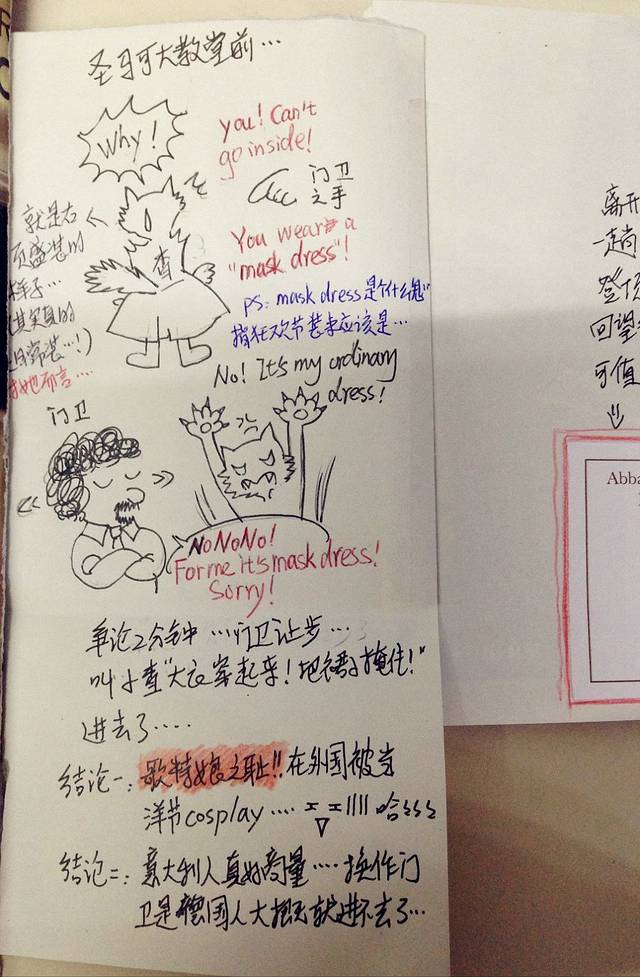 圣马可大教堂前…
Why!
you! Can't
go inside!
门卫
之手
就是右
页盛装的
样子…
(其实真的
日常装…!)
对她而言…
查
You wear a
"mask dress"!
ps: mask dress是个什么鬼"
指狂欢节装束应该是…
No! It's my ordinary
dress!
门卫
NoNoNo!
For me it's mask dress!
Sorry!
争论2分钟…门卫让步…
叫小查"大衣穿起来!把裙子掩住!"
进去了……
结论一:歌特娘之耻!!在外国被当
洋节cosplay…… 哈
结论二:意大利人真好商量……换作门
卫是德国人大概就进不去了…
离开
一趟
登
回望
可值
Abba